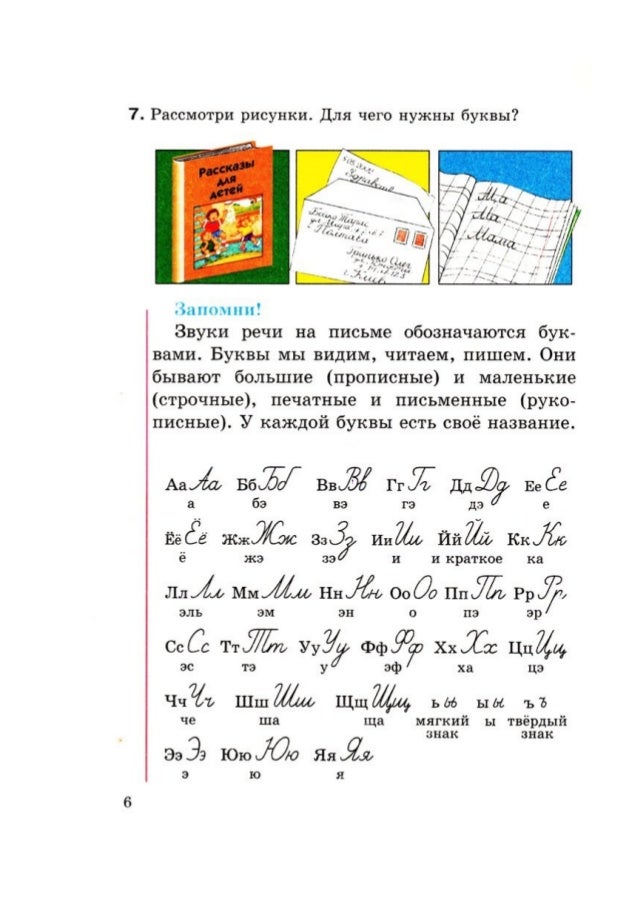 7. Рассмотри рисунки. Для чего нужны буквы?
Рассказы
для
детей
Здравств
Полтава
Гринько Олег
г. Киев
Ма
Ма
Мама
Запомни!
Звуки речи на письме обозначаются бук-
вами. Буквы мы видим, читаем, пишем. Они
бывают большие (прописные) и маленькие
(строчные), печатные и письменные (руко-
писные). У каждой буквы есть своё название.
Аа Аа Бб Бб Вв Вв Гг Гг Дд Дд Ее Ее
а бэ вэ гэ дэ е
Ёё Ёё Жж Жж Зз Зз Ии Ии Йй Йй Кк Кк
ё жэ зэ и и краткое ка
Лл Лл Мм Мм Нн Нн Оо Оо Пп Пп Рр Рр
эль эм эн о пэ эр
Сс Сс Тт Тт Уу Уу Фф Фф Хх Хх Цц Цц
эс тэ у эф ха цэ
Чч Чч Шш Шш Щщ Щщ ь ь ы ы ъ ъ
че ша ща мягкий ы твёрдый
знак знак
Ээ Ээ Юю Юю Яя Яя
э ю я
6